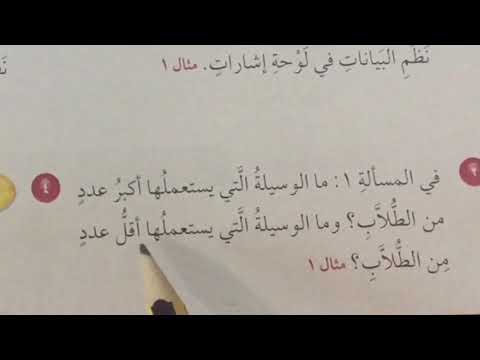 نَظِّمِ البَياناتِ في لَوْحةِ إشاراتٍ. مثال ١
٤ في المسألةِ ١: ما الوسيلةُ الَّتي يستعملُها أكبرُ عددٍ
من الطُّلاَّبِ؟ وما الوسيلةُ الَّتي يستعملُها أقلُّ عددٍ
مِن الطُّلاَّبِ؟ مثال ١